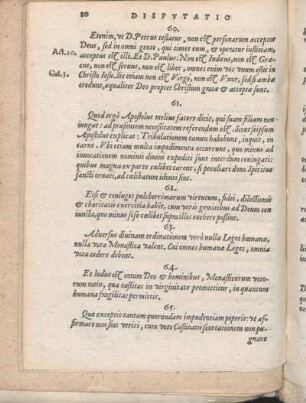 80 DISPVTATIO
60.
Etenim, vt D. Petrus testatur, non est personarum acceptor
Act. 10. Deus, sed in omni gente, qui timet eum, & operatur iustitiam,
acceptus est illi. Et D. Paulus: Non est Iudæus, non est Græ-
Gal. 3. cus, non est seruus, non est liber, omnes enim vos vnum estis in
Christo Iesu. Sic etiam non est Virgo, non est Vxor, sed si ambæ
credunt, equaliter Deo propter Christum gratæ & acceptæ sunt.
61.
Quod ergo Apostolus melius facere dicit, qui suam filiam non
iungat: ad præsentem necessitatem referendum est. Sicut seipsum
Apostolus explicat: Tribulationem tamen habebunt, inquit, in
carne. Vbi etiam multa impedimenta occurrunt, quo minus ad
inuocationem nominis diuini expediti sint interdum coniugati:
quibus magna ex parte cælibat carent, si peculiari dono Spiritus
sancti ornati, ad cælibatum idonei sint.
62.
Etsi & coniuges pulcherrimarum virtutum, fidei, dilectionis
& charitatis exercitia habent, cum veris gemitibus ad Deum con-
iunctis, quo minus sese cælibes supplices turbere possunt.
63.
Aduersus diuinam ordinationem verò nullæ Leges humanæ,
nulla vota Monastica valent. Cui omnes humanæ Leges, omnia
vota cedere debent.
64.
Et ludus est coram Deo & hominibus, Monasticorum voto-
rum ratio, qua castitas in virginitate promittitur, in quantum
humana fragilitas permittit.
65.
Quæ exceptio tantam quorundam impudentiam peperit: vt af-
firmare non sint veriti, cum voto Castitatis scortationem non pu-
gnare